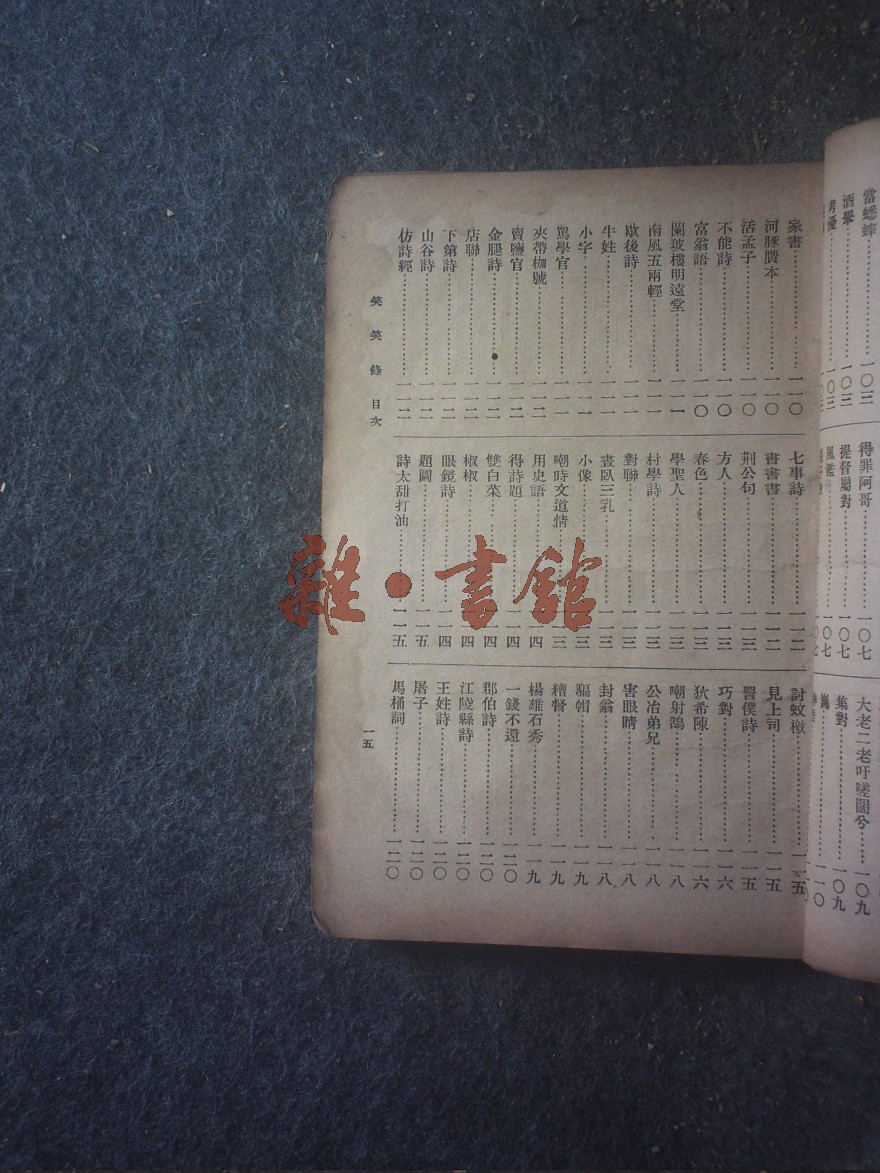 當蟋蟀…………一〇三
酒舉…………一〇三
得罪阿哥…………一〇七
提督屬對…………一〇七
大老二老吁嗟闊兮……一〇九
集對…………一〇九
家書…………一一〇
河豚贗本…………一一〇
活孟子…………一一〇
不能詩…………一一〇
富翁語…………一一〇
蘭玻樓明遠堂…………一一一
南風五兩輕…………一一一
歇後詩…………一一一
牛姓…………一一一
小字…………一一一
罵學官…………一一一
夾帶枷號…………一一二
賣鹽官…………一一二
金腿詩…………一一二
店聯…………一一二
下第詩…………一一二
山谷詩…………一一二
仿詩經…………一一二
七事詩…………一一二
書書書…………一一二
荆公句…………一一三
方人…………一一三
春色…………一一三
學聖人…………一一三
村學詩…………一一三
對聯…………一一三
晝臥三乳…………一一三
小像…………一一三
嘲時文道情…………一一三
用史語…………一一四
得詩題…………一一四
雙白菜…………一一四
椒椒…………一一四
眼鏡詩…………一一四
題圖…………一一五
詩太甜打油…………一一五
討蚊檄…………一一五
見上司…………一一五
詈僕詩…………一一五
巧對…………一一六
狄希陳…………一一六
嘲射鵠…………一一八
公冶弟兄…………一一八
害眼睛…………一一八
封翁…………一一八
驅帽…………一一九
糟督…………一一九
楊雄石秀…………一一九
一錢不還…………一二〇
郡伯詩…………一二〇
江陵縣詩…………一二〇
王姓詩…………一二〇
屠子…………一二〇
馬桶詞…………一二〇
笑笑錄 目次
一五
雜·書館